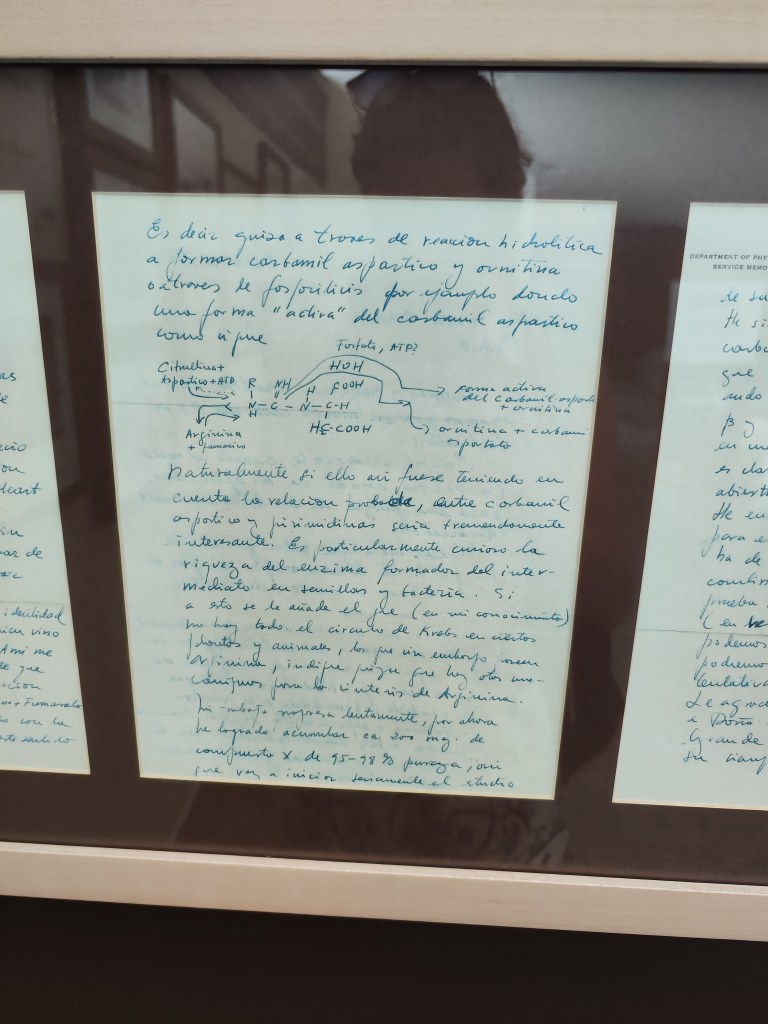 as
e
ecio
ion
Heart
in
ar de
identidad
vino
Ami me
te que
acion
+ Fumarato
con la
este sentido
Es decir quiza a traves de reaccion hidrolitica
a formar carbamil aspartico y ornitina
o atraves de fosforilicis por ejemplo dando
una forma "activa" del carbamil aspartico
como sigue
Fosfato, ATP?
HOH
Citrulina+
Aspartico + ATP
R NH H COOH
N – C – N – C-H
H
HC-COOH
Arginina
+ fumarico
forma activa
del carbamil-aspart
+ ornitina
ornitina + carbami
aspartato
Naturalmente si ello asi fuese teniendo en
cuenta la relacion probada, entre carbamil
aspartico y pirimidinas seria tremendamente
interesante. Es particularmente curioso la
riqueza del enzima formador del inter-
mediato en semillas y bacteria. Si
a esto se le añade el que (en mi conocimiento)
no hay todo el circulo de Krebs en ciertos
plantas y animales, los que sin embargo
Arginina, indique que hay otos me-
canismos para la sintesis de Arginina.
Mi trabajo progresa lentamente, por ahora
he logrado acumular ca. 200 mg. de
compuesto X. de 95-98% pureza
que voy a iniciar seriamente el estudio
DEPARTMENT OF PHY
SERVICE MEMO
de su
He si
carba
que
ando
β y
en un
es cla
abiert
He en
para e
ha de
condi
prueba
(en
podemos
podremos
tentativa
Le agrad
a Doña
Grande
su